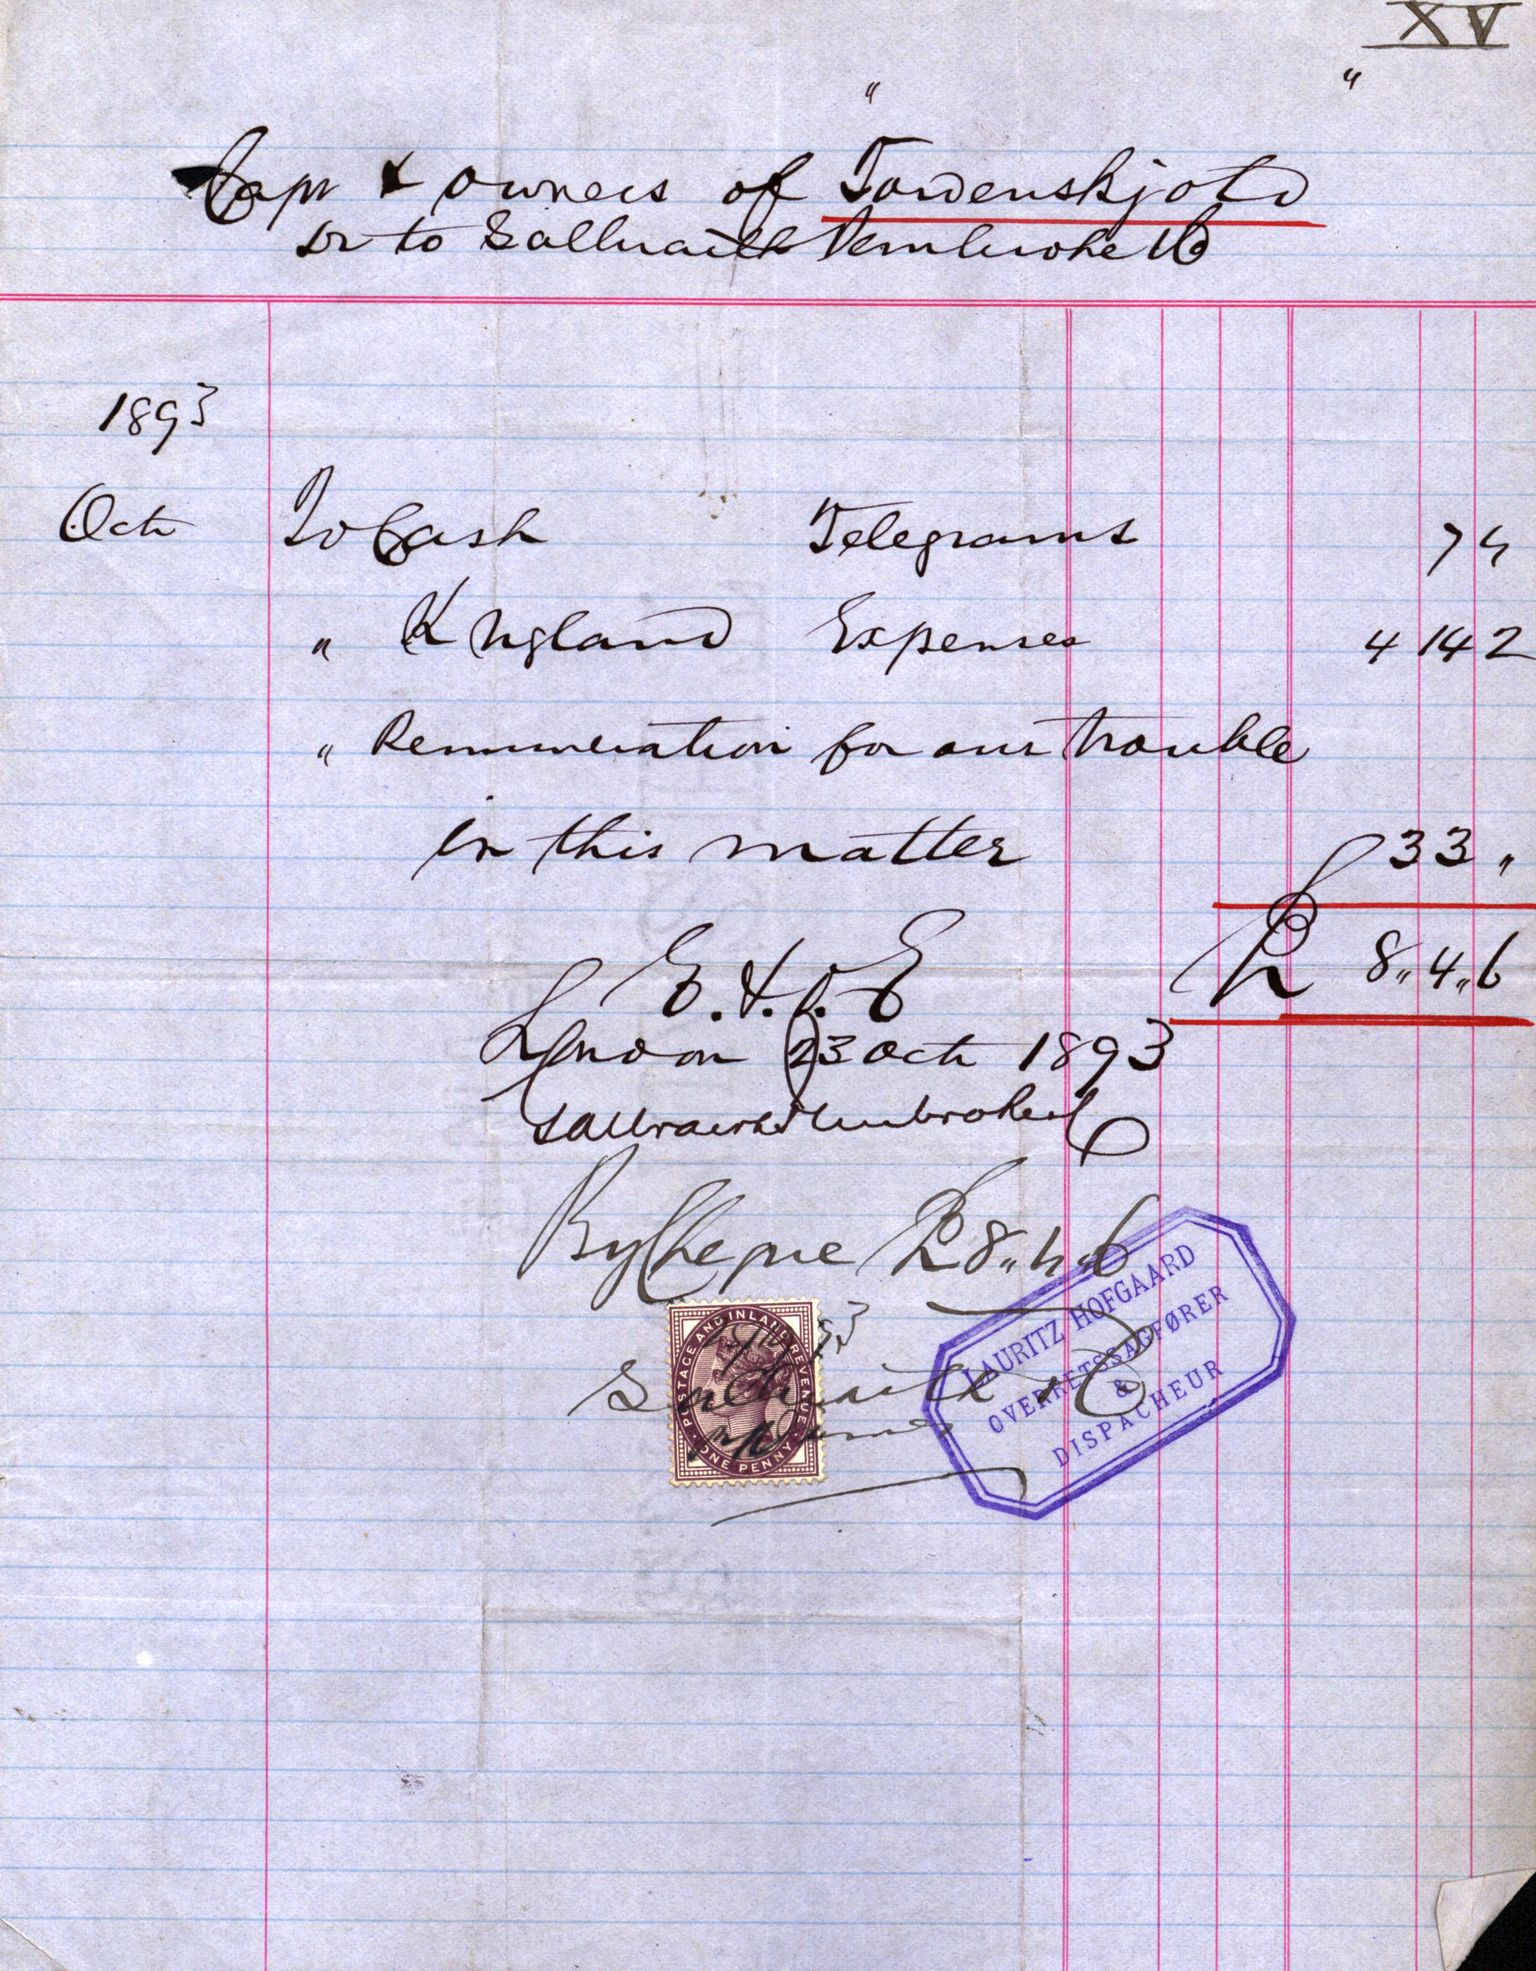 XV
" "
Capt & owners of Tordenskjold
Dr to Galbraith Pembroke & Co
1893
Oct To Cash Telegrams 7 4
" K England Expenses 4 14 2
" Remuneration for our trouble
in this matter 3 3 "
£ 8 " 4 " 6
E. & O. E
London 23 Oct 1893
Galbraith Pembroke & Co
By Cheque £ 8 " 4 " 6
93
Galbraith P & Co
POSTAGE AND INLAND REVENUE
ONE PENNY
LAURITZ HOFGAARD
OVERRETSSAGFØRER
&
DISPACHEUR